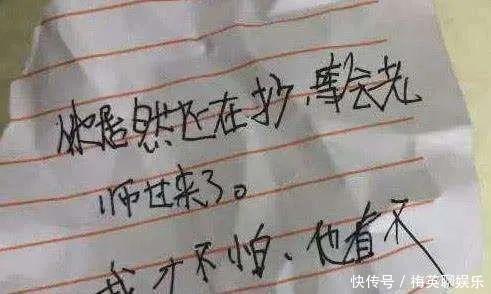 你居然还在抄，等会老
师过来了。
我才不怕、他看不
快传号／梅英聊娱乐